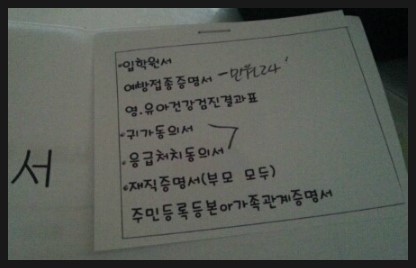 ·입학원서
예방접종증명서 -
영.유아건강검진결과표
·귀가동의서
·응급처치동의서
·재직증명서(부모 모두)
주민등록등본or가족관계증명서
서